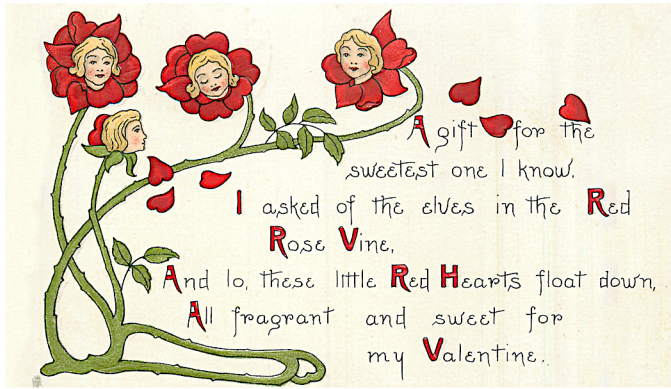 A gift for the
sweetest one I know.
I asked of the elves in the Red
Rose Vine,
And lo, these little Red Hearts float down,
All fragrant and sweet for
my Valentine.